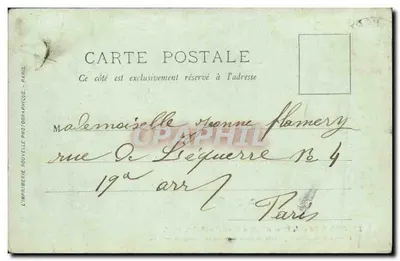 CARTE POSTALE
Ce côté est exclusivement réservé à l'adresse
L'IMPRIMERIE NOUVELLE PHOTOGRAPHIQUE - PARIS
Mademoiselle Jeanne Flamery
rue de L'équerre No 4
19e arr
Paris
DELCAMPE